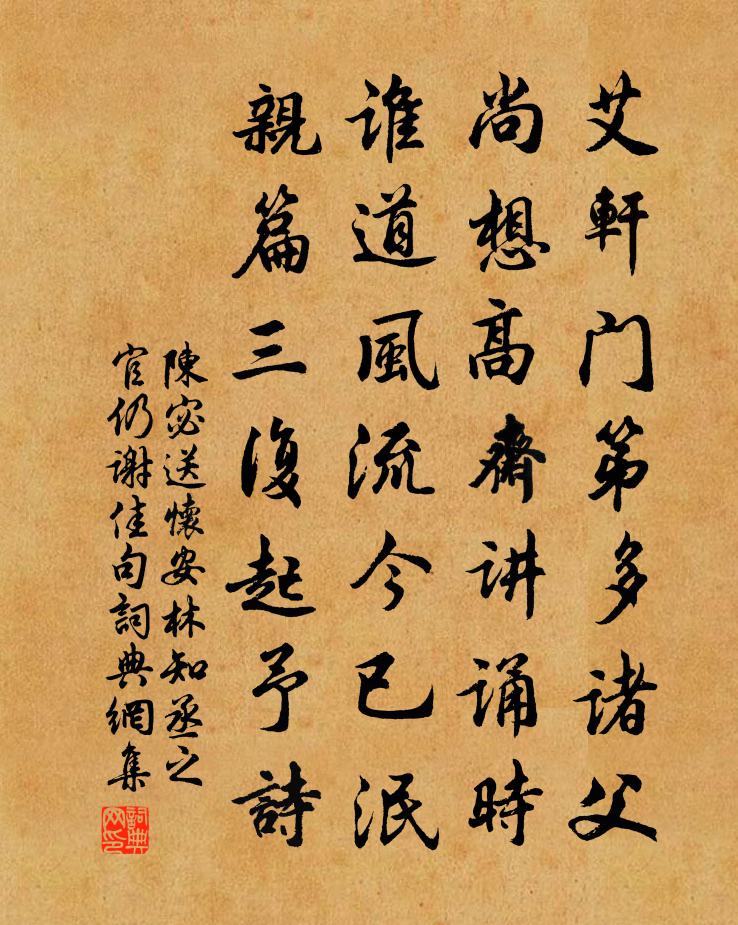 艾軒门第多诸父
尚想高齋讲诵時
谁道風流今已泯
親篇三復起予詩
陳宓送懷安林知丞之
官仍谢佳句詞典網集
詞典网印